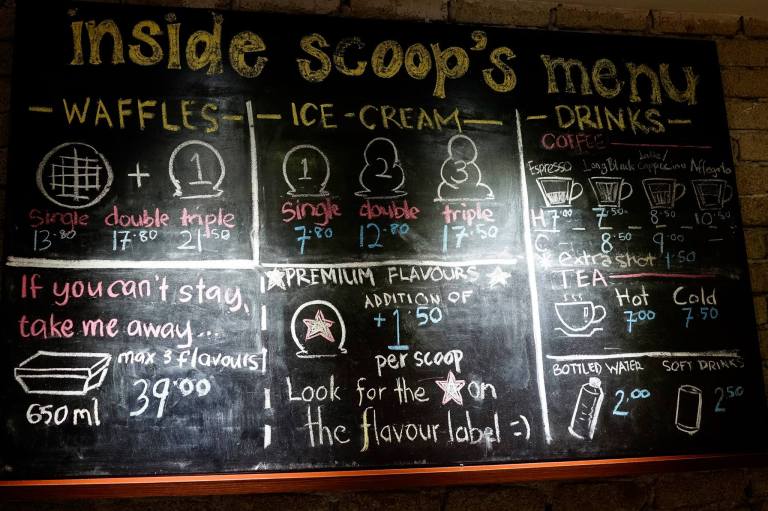 inside scoop's menu
- WAFFLES -
+ 1
Single double triple
13.80 17.80 21.50
If you can't stay,
take me away...
max 3 flavours
650 ml 39.00
- ICE-CREAM -
1 2 3
Single double triple
7.80 12.80 17.50
★PREMIUM FLAVOURS★
ADDITION OF
+1.50
per scoop
Look for the ★ on
the flavour label =)
- DRINKS -
COFFEE
Espresso Long Black Latte/Cappuccino Affogato
H 7.00 7.50 8.50 10.50
C - 8.50 9.00 -
* extra shot 1.50
TEA
Hot Cold
7.00 7.50
BOTTLED WATER SOFT DRINKS
2.00 2.50